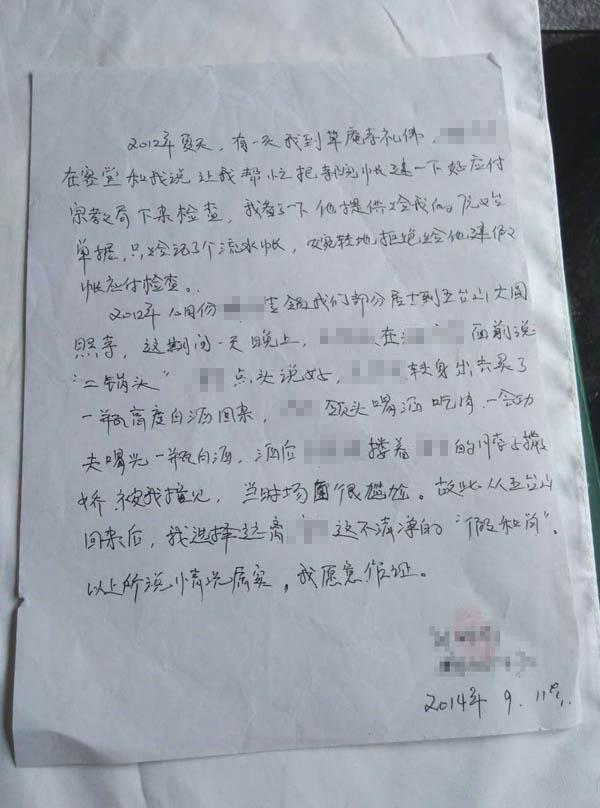 2012年夏天，有一天我到草庵寺礼佛，
在客堂和我说 让我帮忙把 帐建一下 好应付
宗教局下来检查，我看了一下 他提供给我的
单据，只给记了个流水帐，婉转地拒绝给他建假
帐应付检查。
2012年 月份 我们部分居士到五台山大圆
照寺，这期间一天晚上， 在 面前说
“二锅头” 点头说好， 转身出去买了
一瓶高度白酒回来， 领头喝酒吃肉 一会功
夫喝光一瓶白酒，酒后 搂着 的脖子撒
娇 被我撞见，当时场面很尴尬。故此从五台山
回来后，我选择远离 这不清净的“假和尚”。
以上所说情况属实，我愿意作证。
2014年 9. 11